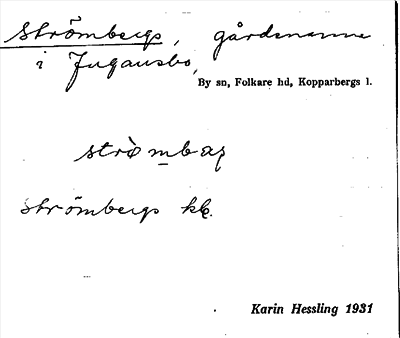 Strömbergs, gårdsnamn
i Jugansbo,
By sn, Folkare hd, Kopparbergs l.
strömbergs kb.
Karin Hessling 1931